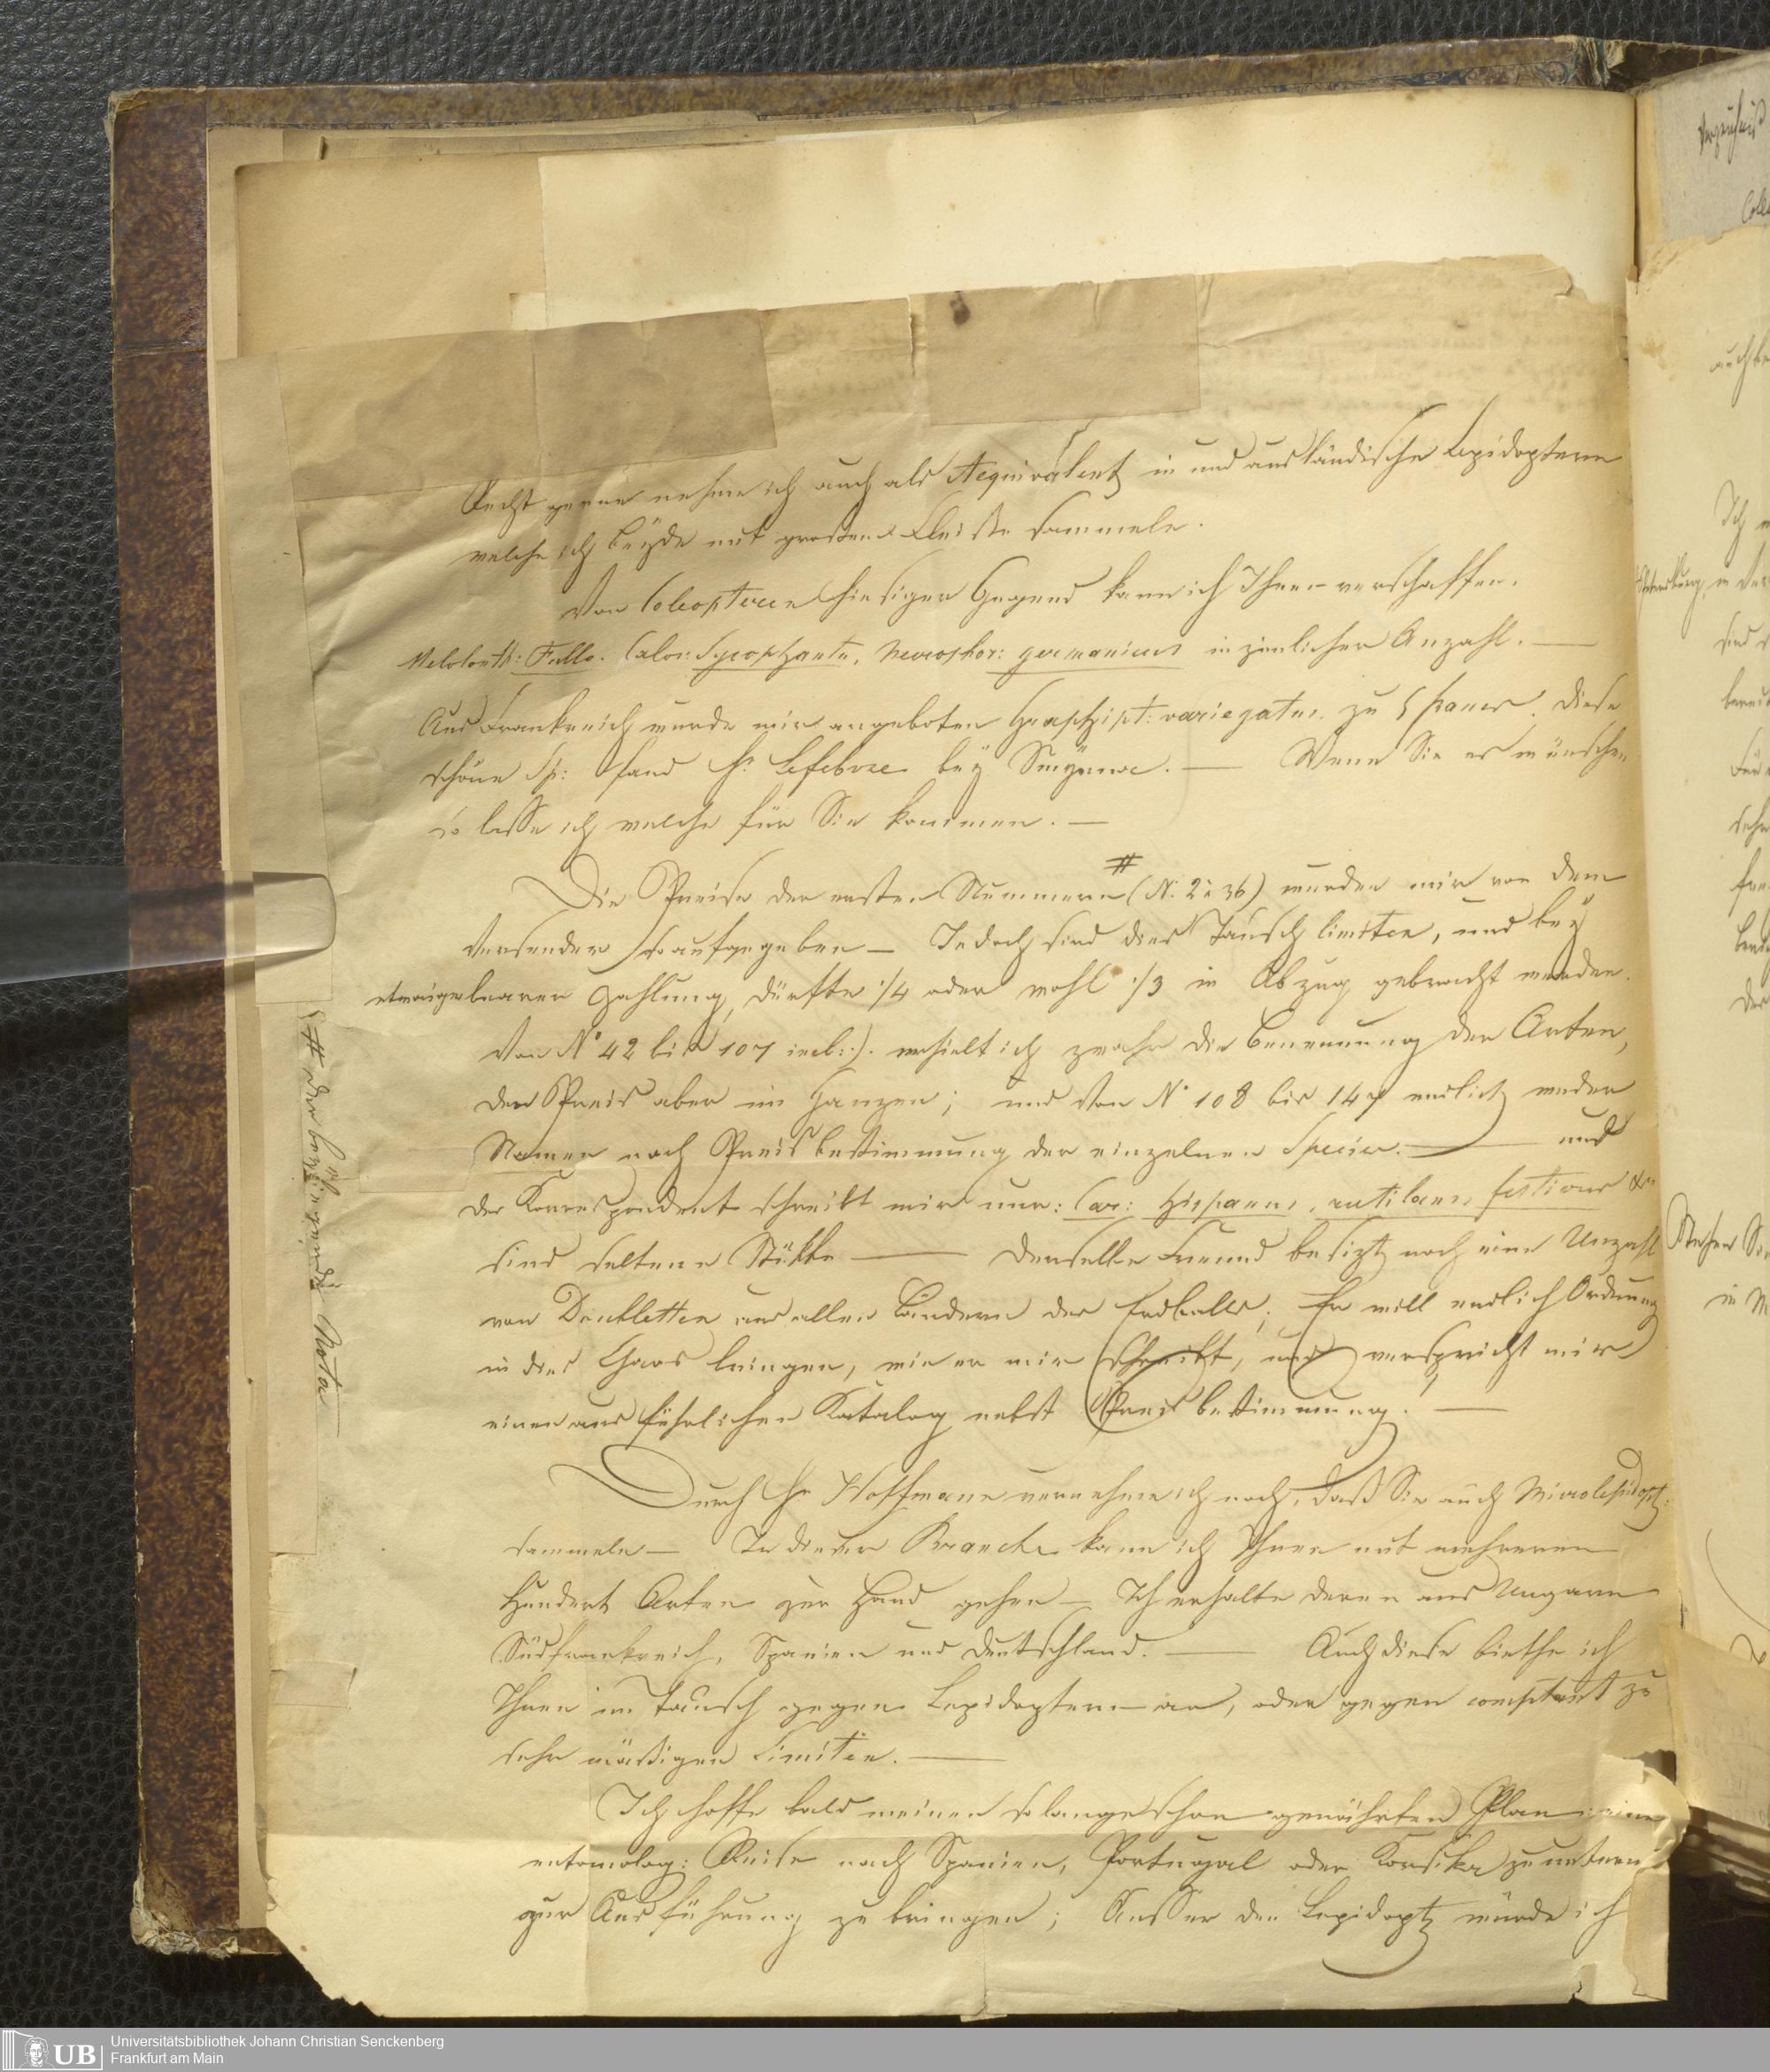 Recht gerne nehme ich auch als Aequivalent in und ausländische Lepidoptern
welche ich beÿde mit großem Fleiße sammele.
Von Coleoptern hiesiger Gegend kann ich Ihnen verschaffen.
Melolonth: Fullo. Calos: Sycophanta, Necrophor: germanicus in zimlicher Anzahl. —
Aus Frankreich wurde mir angeboten Graphipt: variegatus. zu 5 francs. diese
schöne Sp: fand Hr. Lefebvre beÿ Smÿrna. — Wenn Sie es wünschen
so lasse ich welche für Sie kommen. —
Die Preise der ersten Nummern # (N: 2 à 36) wurden mir von dem
Versender so aufgegeben — Jedoch sind dies Tausch limiten, und beÿ
etwaiger baarer Zahlung, dürfte 1/4 oder wohl 1/3 in Abzug gebracht werden.
Von No 42 bis 107 incl:). erhielt ich zwahr die Benennung der Arten,
den Preis aber im Ganzen; und von No 108 bis 147 endlich weder
Namen noch Preisbestimmung der einzelnen Species. — und
der Korrespondent schreibt mir nur: Car: hispanus, rutilans, festivus &c
sind seltene Stükke — Derselbe Freund besizt noch eine Unzahl
von Doubletten aus allen Ländern des Erdballs; Er will endlich Ordnung
in dies Chaos bringen, wie er mir schreibt, und verspricht mir
einen ausführlichen Katalog nebst Preisbestimmung. —
Durch Hr Hoffmann vernehme ich noch, daß Sie auch Microlepidopt:
sammeln — In dieser Branche kann ich Ihnen mit mehreren
Hundert Arten zur Hand gehen — Ich erhalte deren aus Ungarn
Südfrankreich, Spanien und Deutschland. — Auch diese biethe ich
Ihnen im Tausch gegen Lepidoptern an, oder gegen comptant zu
sehr mäßigen Limiten. —
Ich hoffe bald meinen so lange schon genährten Plan: eine
entomolog: Reise nach Spanien, Portugal oder Korsika zu untern
zur Ausführung zu bringen; Ausser den Lepidopt würde ich
# der beÿliegenden Nota
Verzeichniß
Universitätsbibliothek Johann Christian Senckenberg
Frankfurt am Main
UB